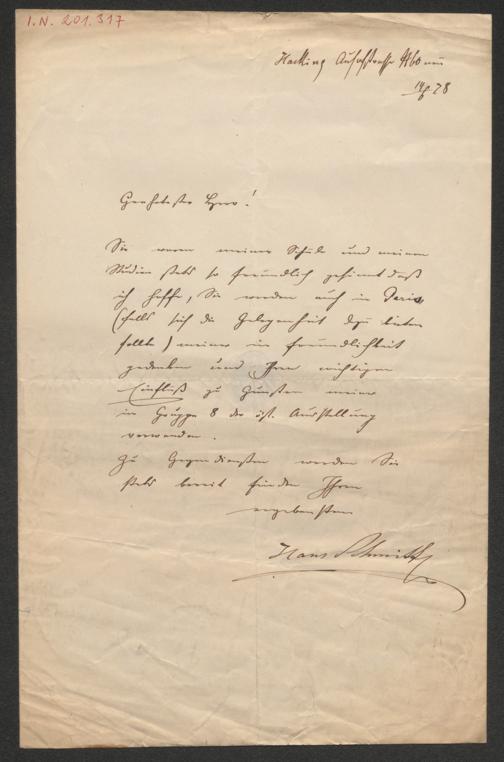 I.N. 201.317
Hacking Auhofstrasse № 60 neu
14/6 78
Geehrtester Herr!
Sie waren meiner Schule und meinen
Studien stets so freundlich gesinnt daß
ich hoffe, Sie werden auch in Paris
(falls sich die Gelegenheit dazu bieten
sollte) meiner in Freundlichkeit
gedenken und Ihren wichtigen
Einfluß zu Gunsten meiner
in Gruppe 8 der öst. Ausstellung
verwenden.
Zu Gegendiensten werden Sie
stets bereit finden Ihren
ergebensten
Hans Schmitt